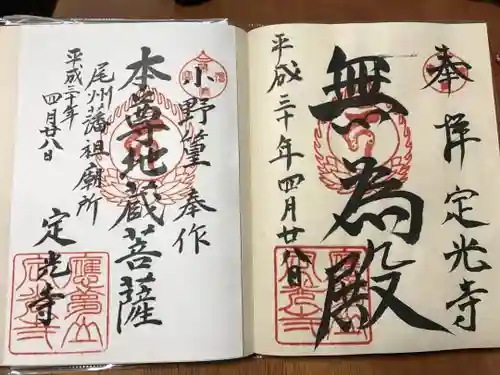 奉拝 定光寺
無為殿
平成三十年四月廿八日
小野篁奉作
本尊地蔵菩薩
尾州藩祖廟所
平成三十年
四月廿八日
定光寺